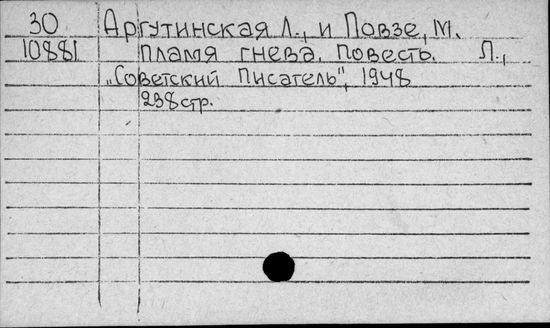 30 Аргутинская Л., и Повзе, М.
10881 Пламя гнева. Повесть. Л.,
„Советский Писатель", 1948
238стр.